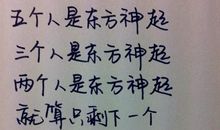 五个人是东方神起
三个人是东方神起
两个人是东方神起
就算只剩下一个